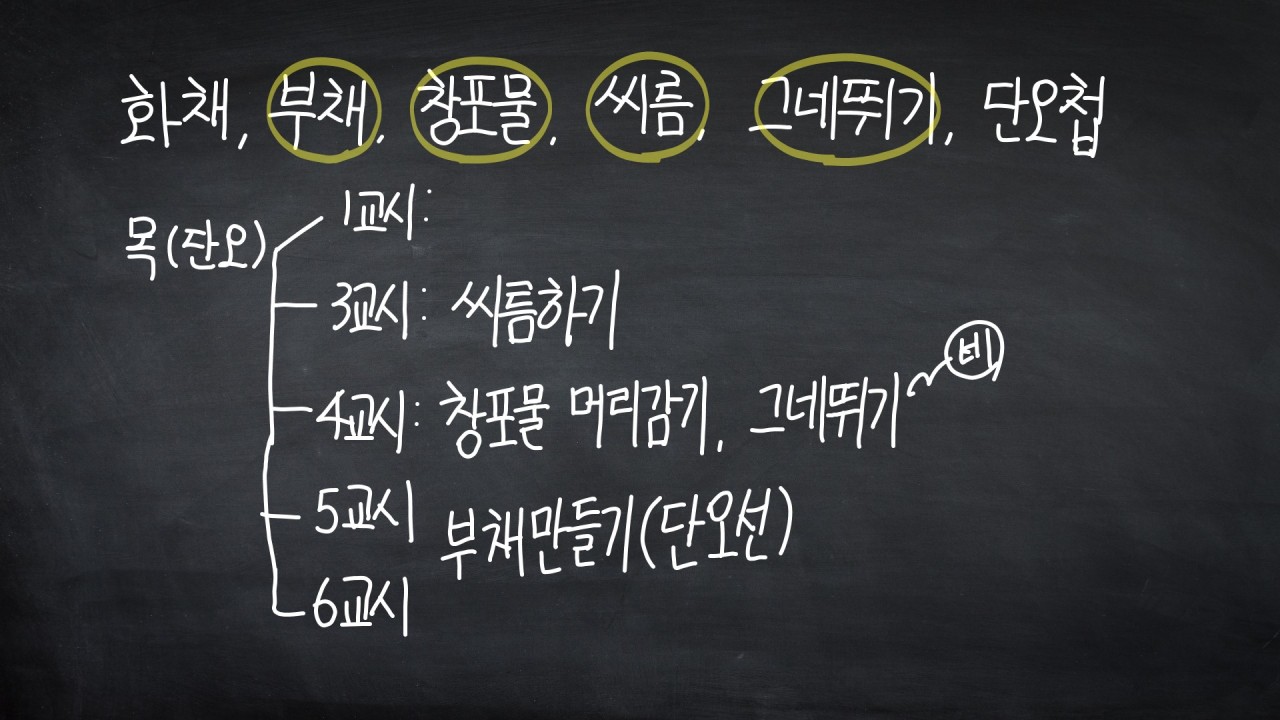 화채, 부채, 창포물, 씨름, 그네뛰기, 단오첩
목(단오)
1교시:
3교시: 씨름하기
4교시: 창포물 머리감기, 그네뛰기
5교시 부채만들기(단오선)
6교시